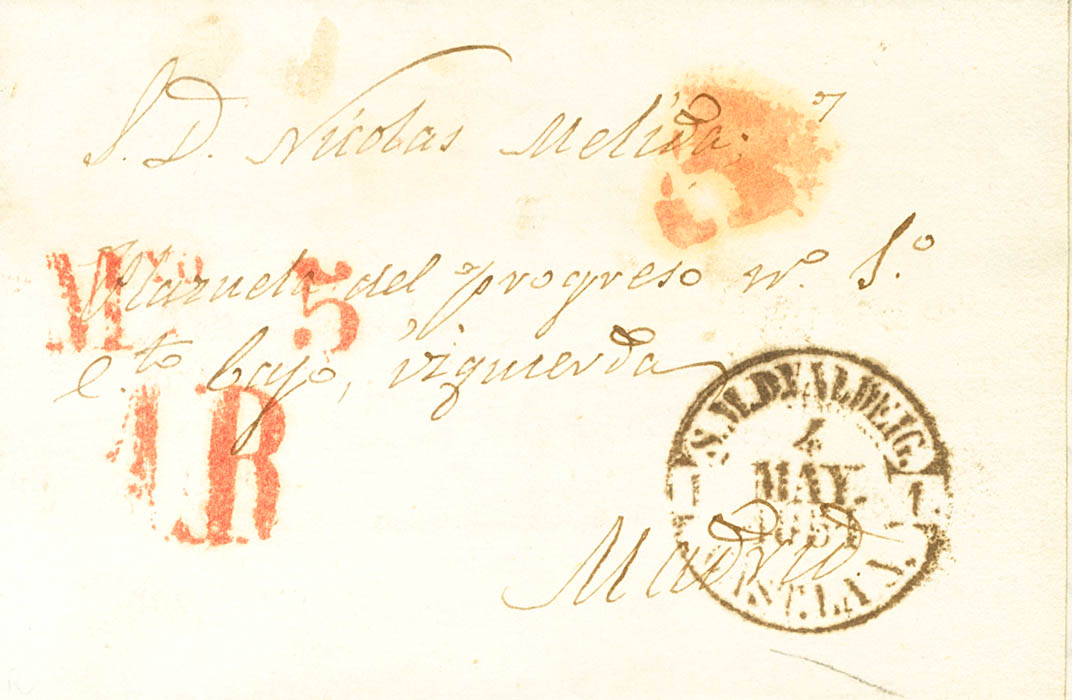 S. D. Nicolas Melida.
Plazuela del progreso nº 5.º
c.to bajo, izquierda
Madrid
Mº 5
1R
S.M.DE VALDEIG.
4
MAY.
1851
CAST.LA N.
1 1